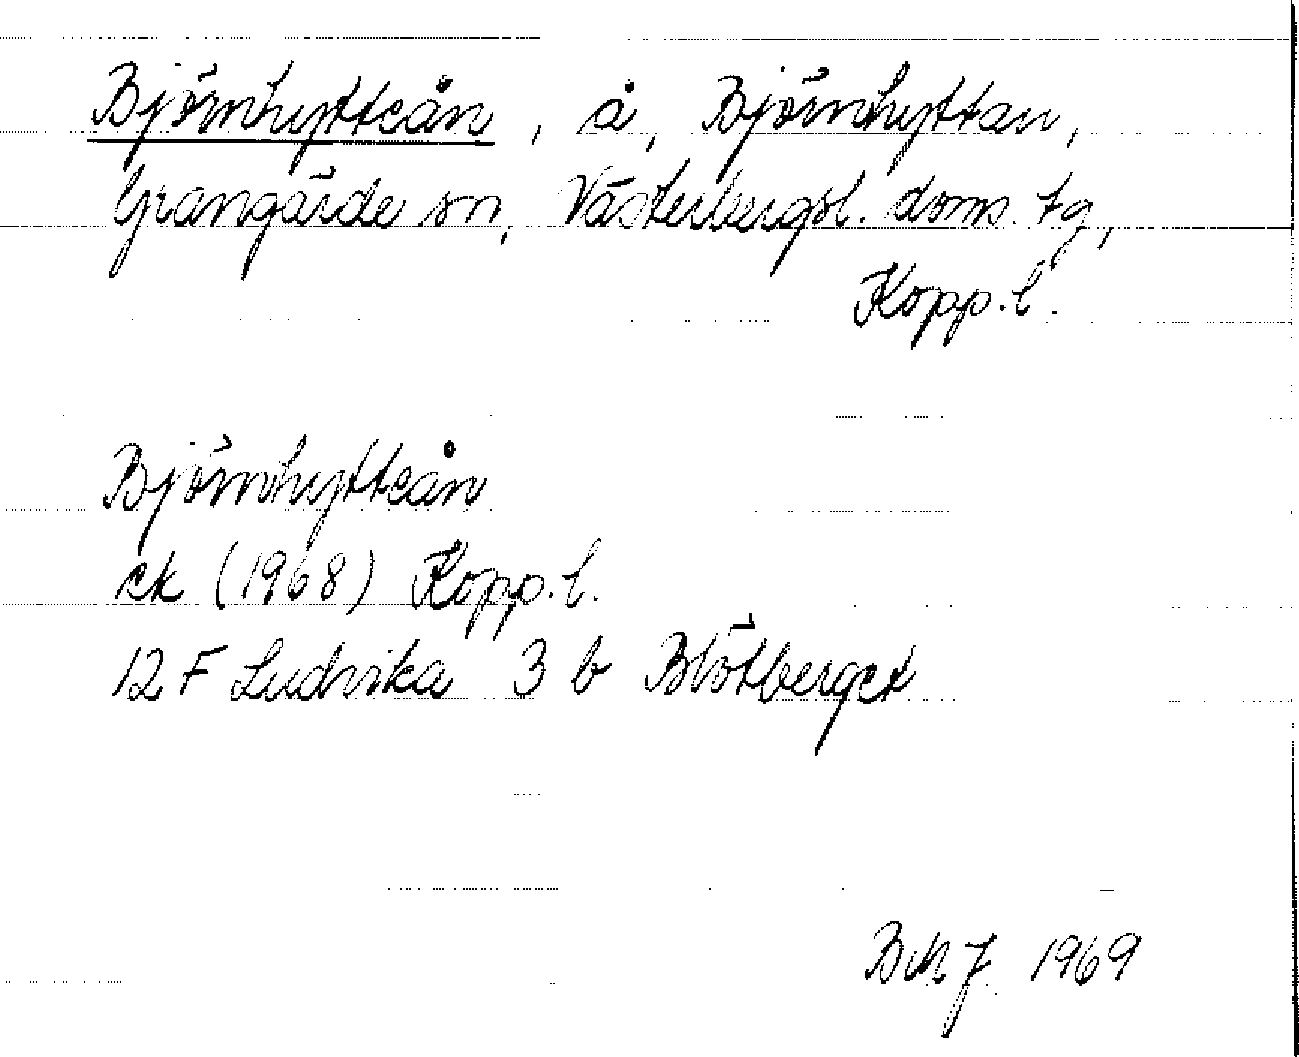 Björnhytteån, å, Björnhyttan,
Grangärde sn, Västerbergsl. doms. tg,
Kopp.l.
Björnhytteån
ek (1968) Kopp.l.
12 F Ludvika 3 b Blötberget
1969